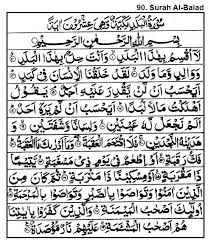 90. Surah Al-Balad
سُورَةُ الْبَلَدِ مَكِّيَّةٌ وَهِيَ عِشْرُونَ آيَةً
بِسْمِ اللهِ الرَّحْمٰنِ الرَّحِيْمِ
لَآ اُقْسِمُ بِهٰذَا الْبَلَدِ ۙ وَاَنْتَ حِلٌّۢ بِهٰذَا الْبَلَدِ ۙ
وَوَالِدٍ وَّمَا وَلَدَ ۙ لَقَدْ خَلَقْنَا الْاِنْسَانَ فِيْ كَبَدٍ ؕ
اَيَحْسَبُ اَنْ لَّنْ يَّقْدِرَ عَلَيْهِ اَحَدٌ ۘ يَقُوْلُ
اَهْلَكْتُ مَالًا لُّبَدًا ؕ اَيَحْسَبُ اَنْ لَّمْ يَرَهٗٓ اَحَدٌ ؕ
اَلَمْ نَجْعَلْ لَّهٗ عَيْنَيْنِ ۙ وَلِسَانًا وَّشَفَتَيْنِ ۙ
وَهَدَيْنٰهُ النَّجْدَيْنِ ۚ فَلَا اقْتَحَمَ الْعَقَبَةَ ۖ وَمَآ اَدْرٰىكَ مَا الْعَقَبَةُ ؕ
فَكُّ رَقَبَةٍ ۙ اَوْ اِطْعٰمٌ فِيْ يَوْمٍ ذِيْ مَسْغَبَةٍ ۙ يَّتِيْمًا
ذَا مَقْرَبَةٍ ۙ اَوْ مِسْكِيْنًا ذَا مَتْرَبَةٍ ؕ ثُمَّ كَانَ مِنَ
الَّذِيْنَ اٰمَنُوْا وَتَوَاصَوْا بِالصَّبْرِ وَتَوَاصَوْا بِالْمَرْحَمَةِ ؕ
اُولٰٓئِكَ اَصْحٰبُ الْمَيْمَنَةِ ؕ وَالَّذِيْنَ كَفَرُوْا بِاٰيٰتِنَا
هُمْ اَصْحٰبُ الْمَشْئَمَةِ ؕ عَلَيْهِمْ نَارٌ مُّؤْصَدَةٌ